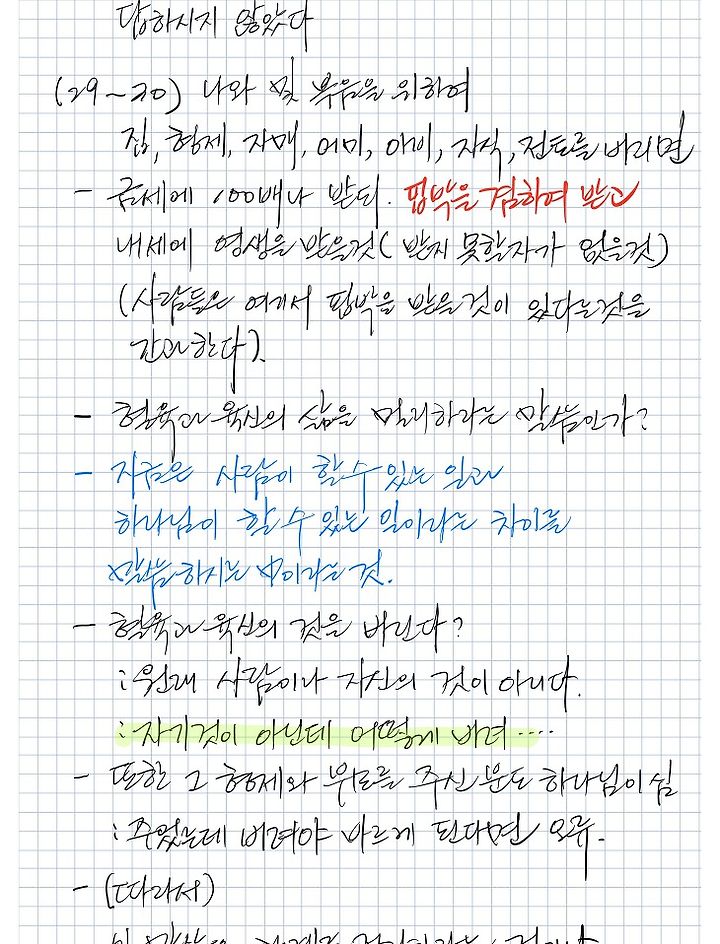 답하시지 않았다
(29~30) 나와 및 복음을 위하여
집, 형제, 자매, 어미, 아비, 자식, 전토를 버리면
- 금세에 100배나 받되. 핍박을 겸하여 받고
내세에 영생을 받을것( 받지 못할자가 없을것)
(사람들은 여기서 핍박을 받을 것이 있다는것을
간과한다).
- 혈육과 육신의 삶을 멀리하라는 말씀인가?
- 지금은 사람이 할 수 있는 일과
하나님이 할 수 있는 일이라는 차이를
말씀하시는 中이라는 것.
- 혈육과 육신의 것을 버린다?
: 원래 사람이나 자신의 것이 아니다.
: 자기것이 아닌데 어떻게 버려····
- 또한 그 형제와 부모를 주신 분도 하나님이심
: 주었는데 버려야 바르게 된다면 오류.
- (따라서)